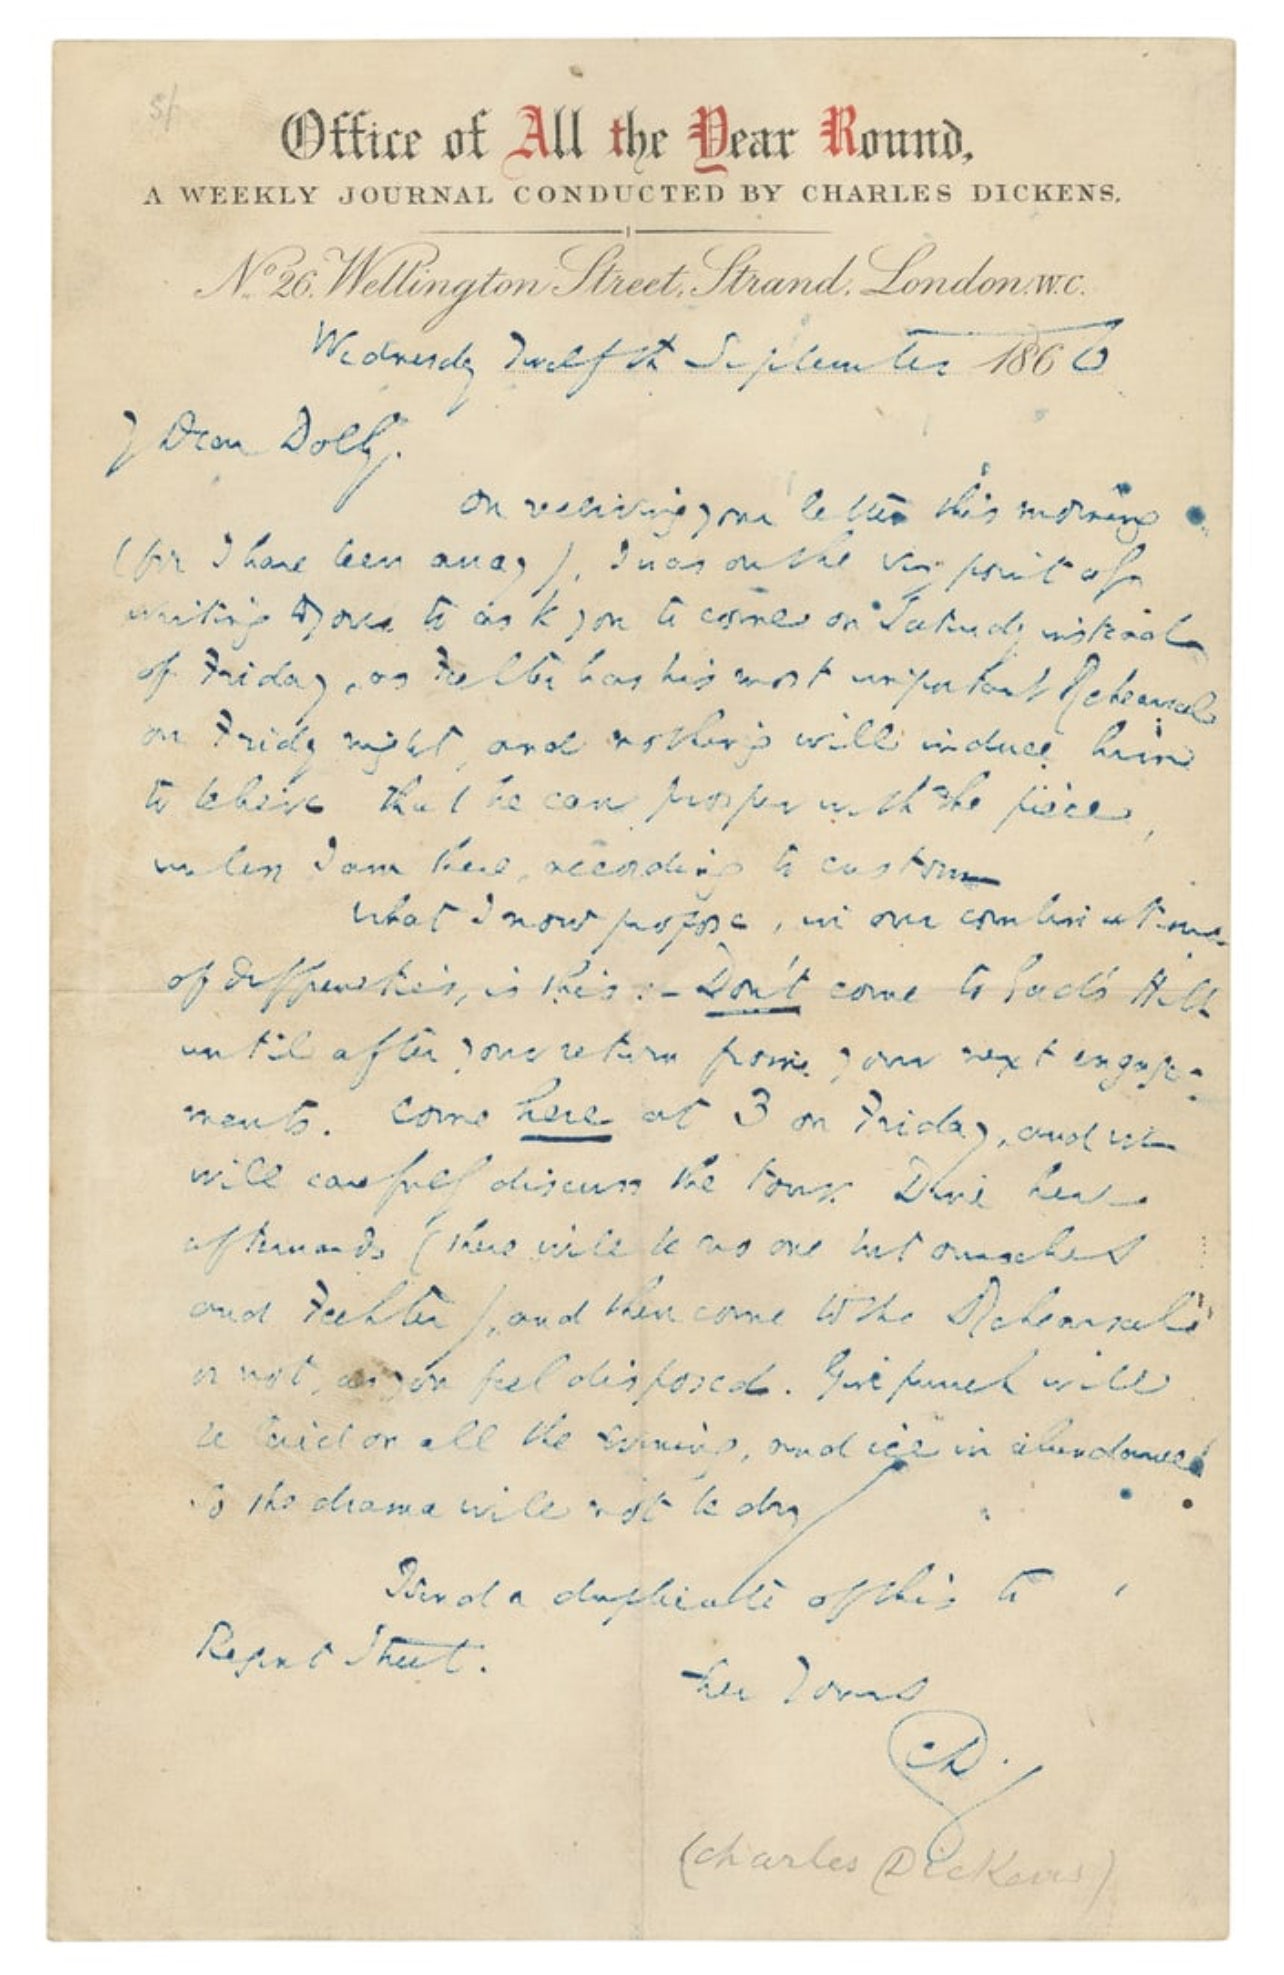 5/
Office of All the Year Round,
A WEEKLY JOURNAL CONDUCTED BY CHARLES DICKENS.
No. 26. Wellington Street, Strand. London. W.C.
Wednesday Twelfth September 1866
My Dear Dolby.
On receiving your letter this morning
(for I have been away), I was on the very point of
writing to you to ask you to come on Saturday instead
of Friday, as Fechter has his most important Rehearsal
on Friday night, and nothing will induce him
to believe that he can prosper with the piece,
unless I am there, according to custom
What I now propose, in our combination
of difficulties, is this:– Don't come to Gad's Hill
until after your return from your next engage-
ments. Come here at 3 on Friday, and we
will carefully discuss the tour. Dine here
afterwards (there will be no one but ourselves
and Fechter), and then come to the Rehearsal
or not, as you feel disposed. Gin punch will
be laid on all the evening, and ice in abundance
So the drama will not be dry
I send a duplicate of this to
Regent Street.
Ever Yours
CD.
(Charles Dickens)